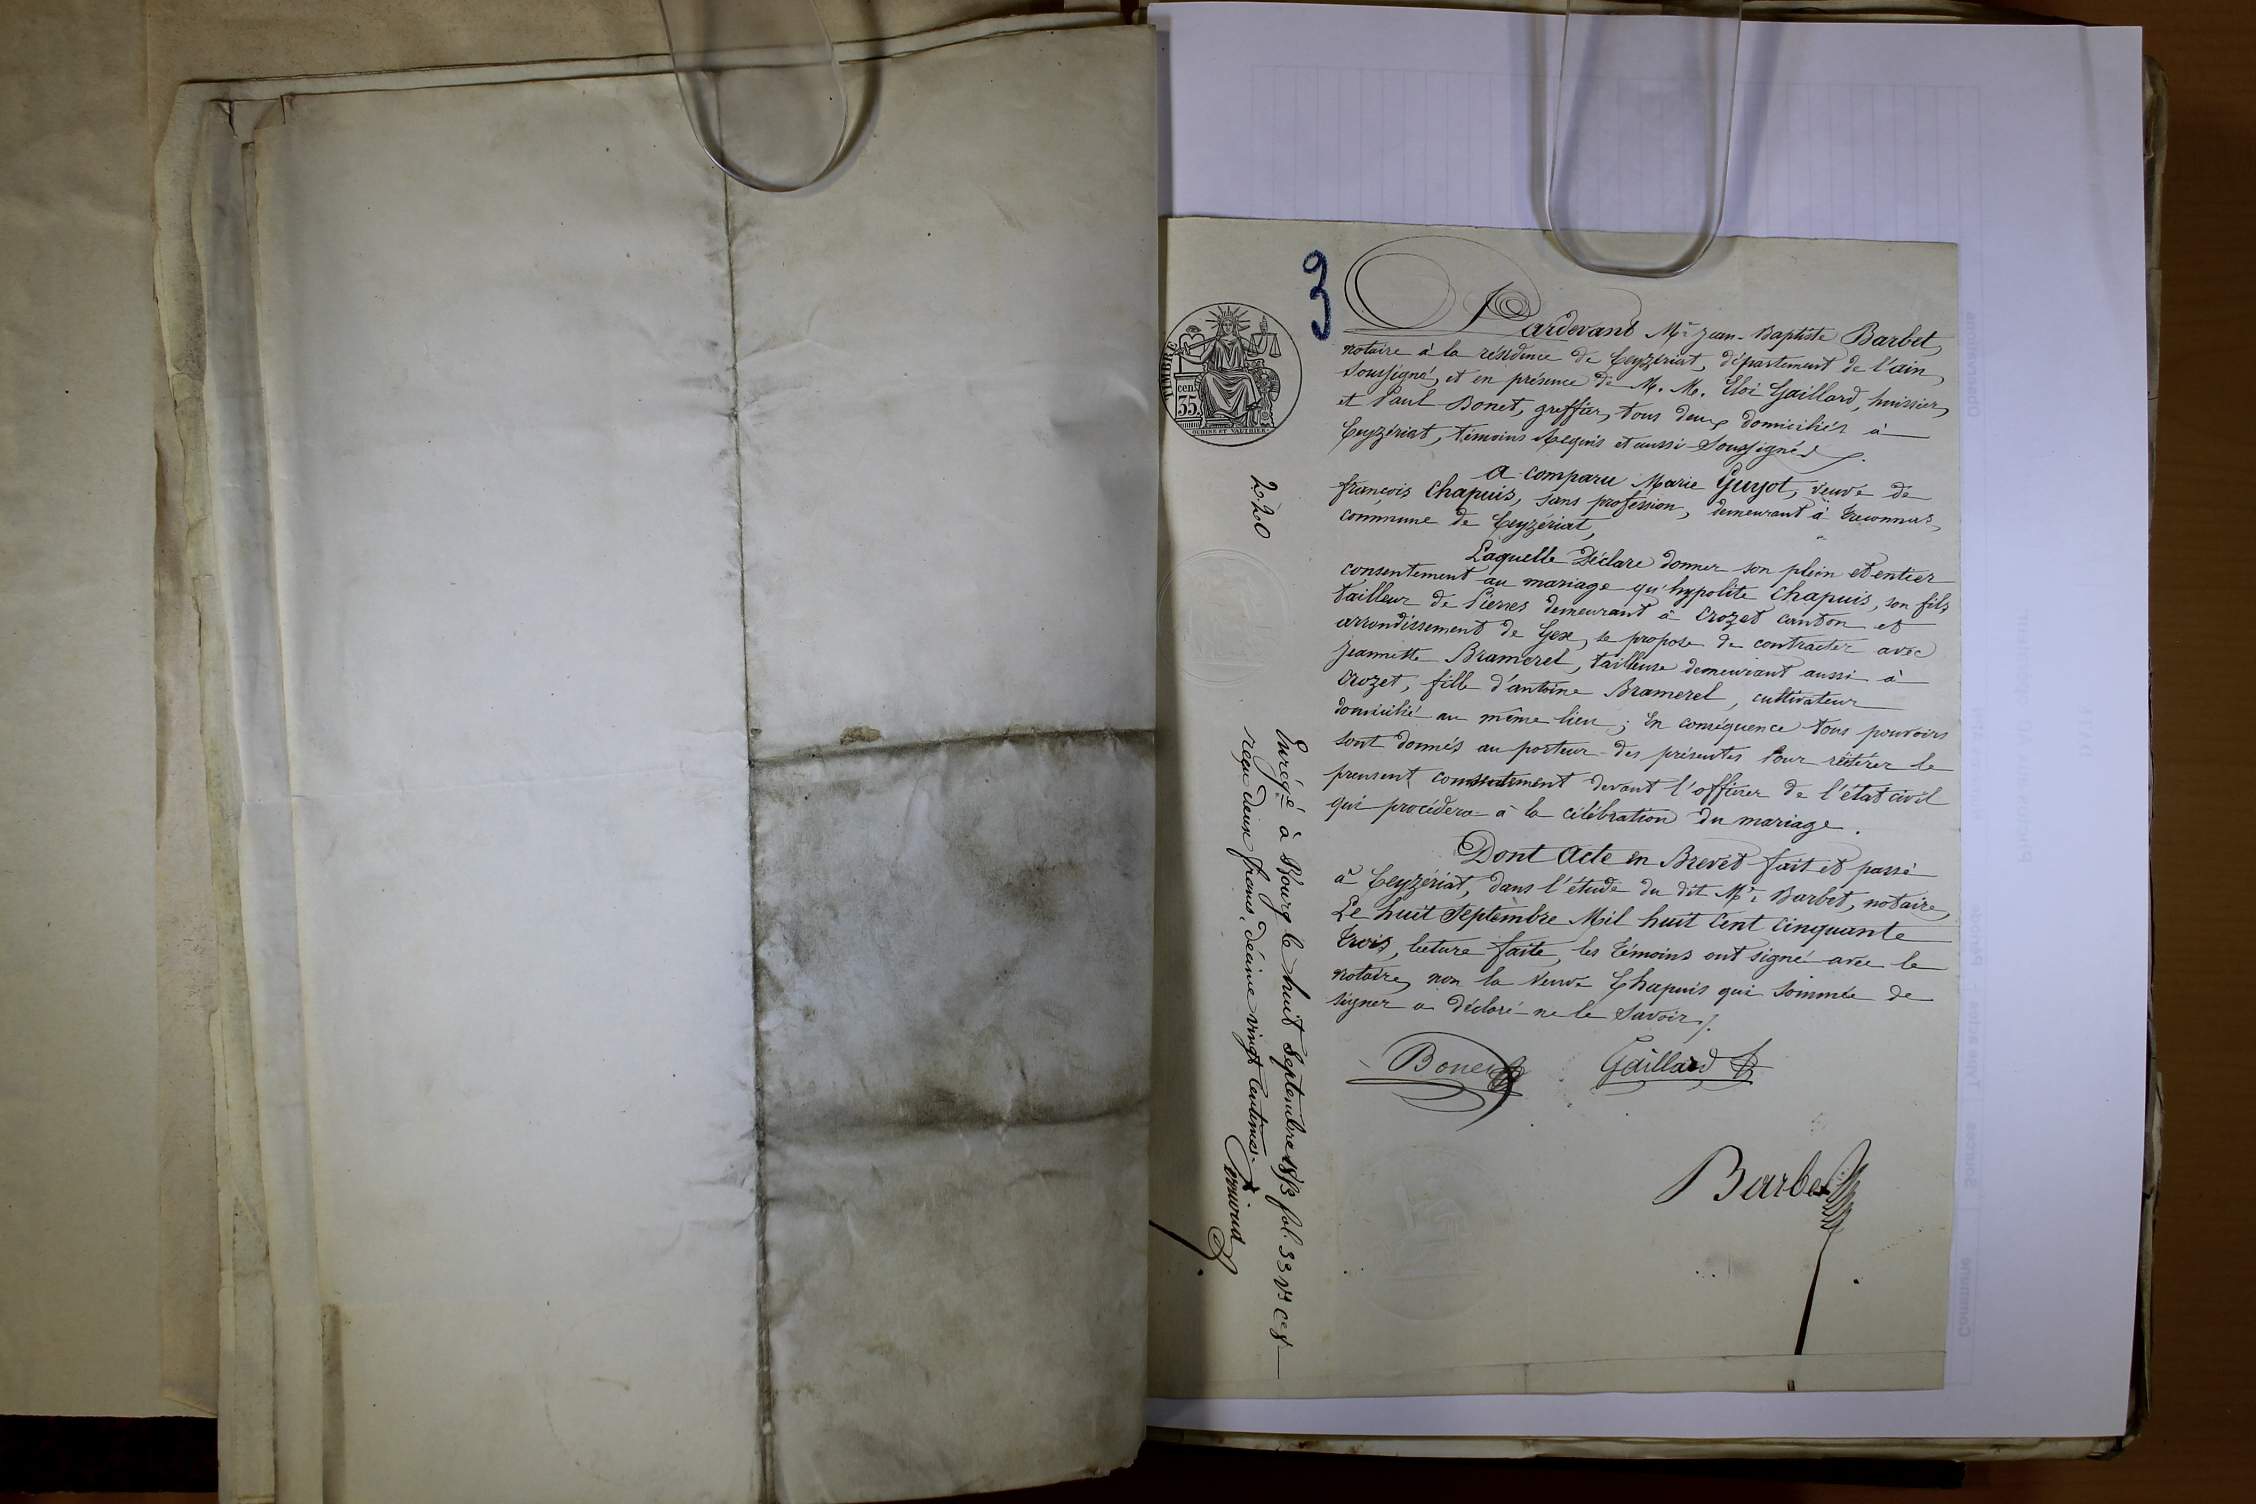 3
Pardevant Me Jean-Baptiste Barbet,
notaire à la résidence de Ceyzériat, département de l'ain,
Soussigné, et en présence de M. M. Eloi Gaillard, huissier,
et Paul Bonet, greffier, tous deux domiciliés à
Ceyzériat, témoins Requis et aussi Soussignés
A comparu Marie Guyot, veuve de
françois Chapuis, sans profession, demeurant à Treconnas,
commune de Ceyzériat,
Laquelle Déclare donner son plein et entier
consentement au mariage qu'hypolite Chapuis, son fils,
tailleur de Pierres demeurant à Crozet canton et
arrondissement de Gex, se propose de contracter avec
Jeannette Bramerel, tailleuse demeurant aussi à
Crozet, fille d'antoine Bramerel, cultivateur
domicilié au même lieu; En conséquence tous pouvoirs
sont donnés au porteur des présentes Pour réitérer le
prensent consentement devant l'officier de l'état civil
qui procédera à la célébration du mariage.
Dont Acte en Brevet fait et passé
à Ceyzériat, dans l'étude du dit Me Barbet, notaire,
Le huit Septembre Mil huit Cent Cinquante
Trois, lecture faite, les témoins ont signé avec le
notaire, non la Veuve Chapuis qui Sommée de
signer a déclaré ne le Savoir /.
Bonet
Gaillard
Barbet
TIMBRE
cen.
35
OUDINE ET VAUTHIER
2.20
Enregé à Bourg le huit Septembre 1853 fol. 33 Vo C 8
reçu deux francs, décime vingt Centimes.